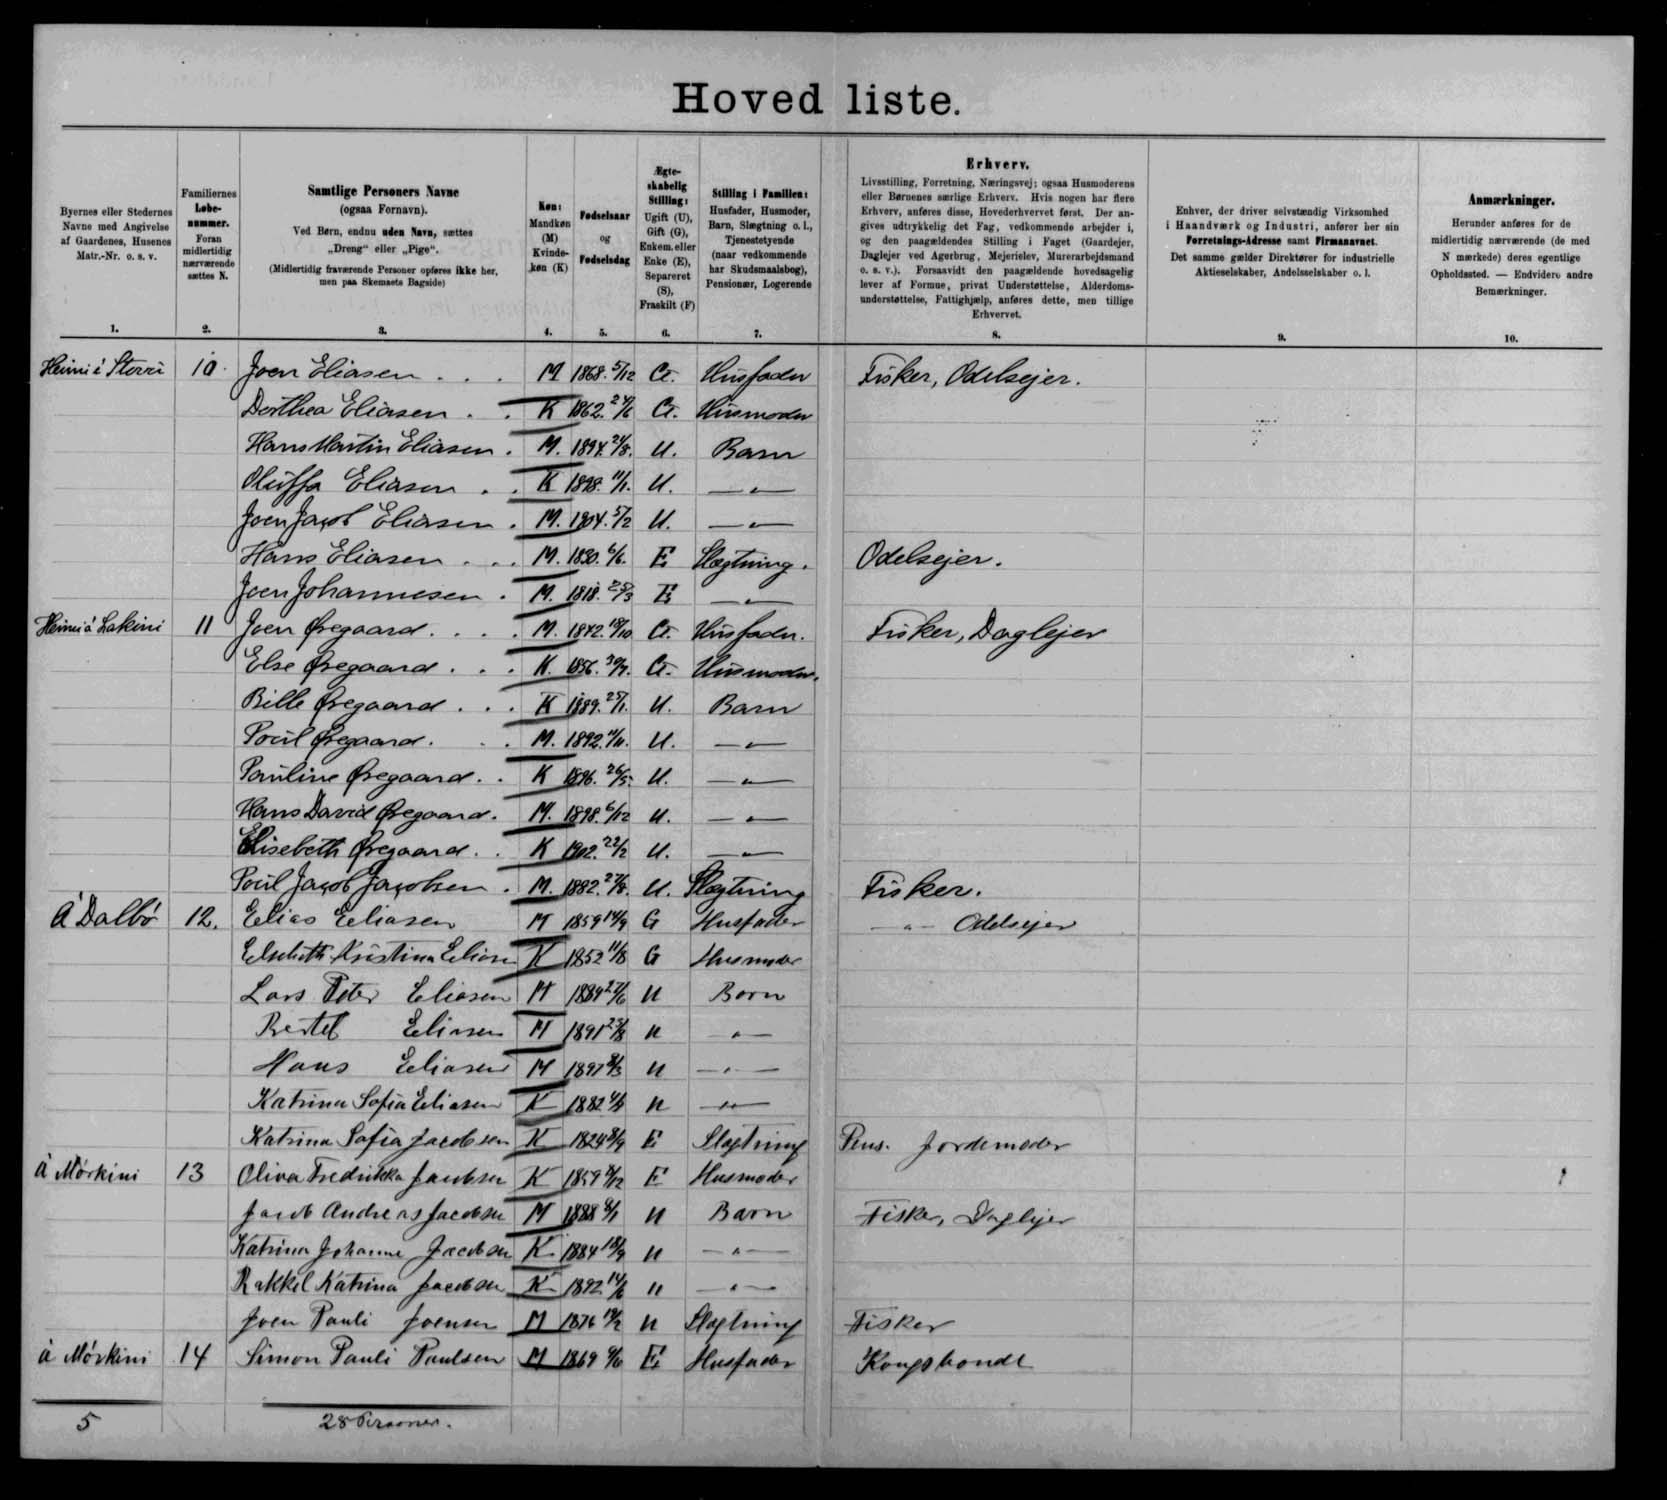 Hoved liste.
Byernes eller Stedernes Navne med Angivelse af Gaardenes, Husenes Matr.-Nr. o. s. v.
Familiernes Løbe-nummer. Foran midlertidig nærværende sættes N.
Samtlige Personers Navne (ogsaa Fornavn). Ved Børn, endnu uden Navn, sættes „Dreng“ eller „Pige“. (Midlertidig fraværende Personer opføres ikke her, men paa Skemaets Bagside)
Køn: Mandkøn (M) Kvinde-køn (K)
Fødselsaar og Fødselsdag
Ægte-skabelig Stilling: Ugift (U), Gift (G), Enkem. eller Enke (E), Separeret (S), Fraskilt (F)
Stilling i Familien: Husfader, Husmoder, Barn, Slægtning o. l., Tjenestetyende (naar vedkommende har Skudsmaalsbog), Pensionær, Logerende
Erhverv. Livsstilling, Forretning, Næringsvej; ogsaa Husmoderens eller Børnenes særlige Erhverv. Hvis nogen har flere Erhverv, anføres disse, Hovederhvervet først. Der angives udtrykkelig det Fag, vedkommende arbejder i, og den paagældendes Stilling i Faget (Gaardejer, Daglejer ved Agerbrug, Mejerielev, Murerarbejdsmand o. s. v.). Forsaavidt den paagældende hovedsagelig lever af Formue, privat Understøttelse, Alderdoms-understøttelse, Fattighjælp, anføres dette, men tillige Erhvervet.
Enhver, der driver selvstændig Virksomhed i Haandværk og Industri, anfører her sin Forretnings-Adresse samt Firmanavnet. Det samme gælder Direktører for industrielle Aktieselskaber, Andelsselskaber o. l.
Anmærkninger. Herunder anføres for de midlertidig nærværende (de med N mærkede) deres egentlige Opholdssted. — Endvidere andre Bemærkninger.
1. 2. 3. 4. 5. 6. 7. 8. 9. 10.
Heimi í Storri 10. Joen Eliasen . . . M 1868. 5/12 G. Husfader Fisker, Odelsejer.
Dorthea Eliasen . . K 1862. 24/6 G. Husmoder
Hans Martin Eliasen . M. 1894. 24/8. U. Barn
Oluffa Eliasen . . K 1898. 11/1. U. — " —
Joen Jacob Eliasen . M. 1904. 5/2 U. — " —
Hans Eliasen . . . M. 1830. 6/6. E Slægtning. Odelsejer.
Joen Johannesen . M. 1818. E — " —
Heimi á Lakini 11 Joen Øregaard . . . . M. 1842. /10 G. Husfader. Fisker, Daglejer
Else Øregaard . . . K. 1856. G. Husmoder.
Bille Øregaard . . . K 1889. 25/1. U. Barn
Poul Øregaard. . . M. 1892. 11/11. U. — " —
Pauline Øregaard . . K 1896. 26/5. U. — " —
Hans David Øregaard. M. 1898. 6/12 U. — " —
Elisebeth Øregaard . . K 1902. 22/2 U. — " —
Poul Jacob Jacobsen . M. 1882. 27/8. U. Slægtning Fisker.
Á Dalbø 12. Elias Eliasen M 1859 14/9 G Husfader — " — Odelsejer
Elsebeth Kristina Eliasen K 1852 11/8 G Husmoder
Lars Peter Eliasen M 1889 27/6 U Barn
Bertel Eliasen M 1891 25/8 U — " —
Hans Eliasen M 1897 U — " —
Katrina Sofia Eliasen K 1882 U — " —
Katrina Sofia Jacobsen K 1824 E Slægtning Pens. Jordemoder
á Mórkini 13 Oliva Fredrikka Jacobsen K 1859 E Husmoder
Jacob Andreas Jacobsen M 1888 U Barn Fisker, Daglejer
Katrina Johanne Jacobsen K 1884 18/9 U — " —
Rakkel Katrina Jacobsen K 1892 14/6 U — " —
Joen Pauli Joensen M 1876 U Slægtning Fisker
á Mórkini 14 Simon Pauli Paulsen M 1869 E Husfader Kongsbonde
5 28 Personer.